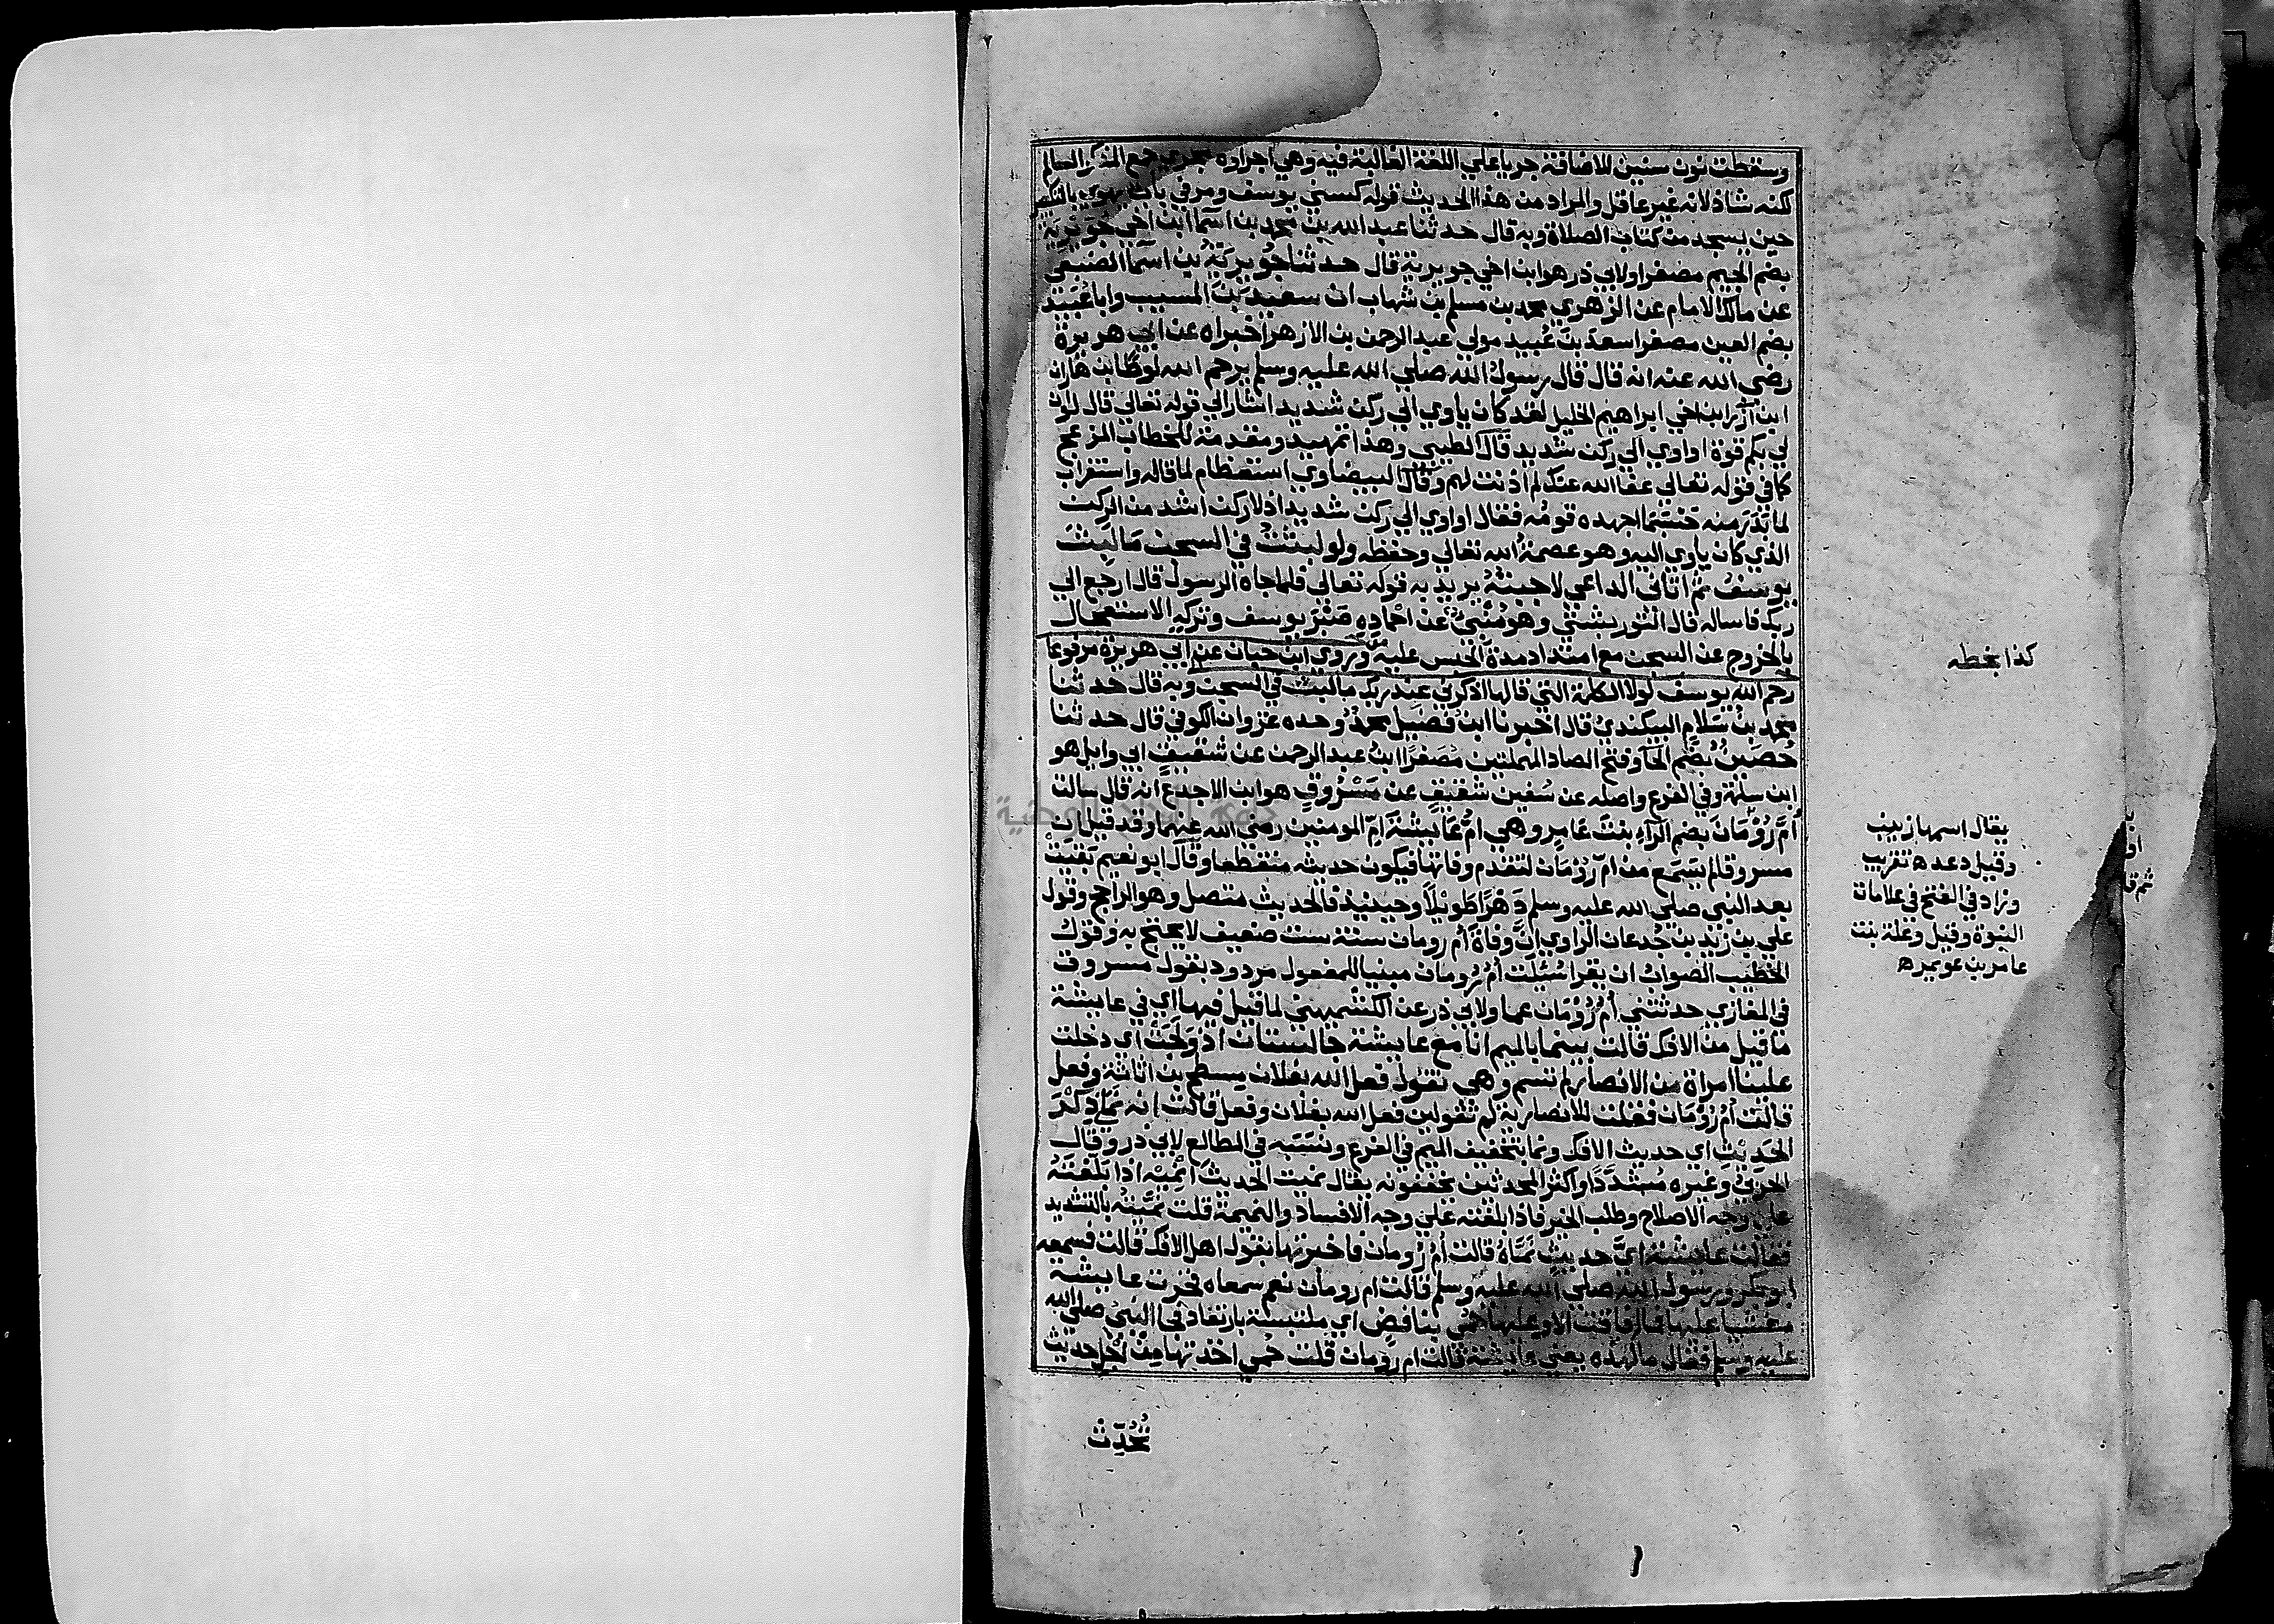 وسقطت نون سنين للاضافة جريا علي اللغة الغالبة فيه وهي اجراوه مجري جمع المذكر السالم
لكنه شاذ لانه غير عاقل والمراد من هذا الحديث قوله كسني يوسف ومر في باب يهوي بالتكبير
حين يسجد من كتاب الصلاة وبه قال حدثنا عبد الله بن محمد بن اسما ابن اخي جويرية
بضم الجيم مصغرا ولابي ذر هو ابن اخي جويرية قال حدثنا جويرية بن اسما الضبعي
عن مالك الامام عن الزهري محمد بن مسلم بن شهاب ان سعيد بن المسيب وابا عبيد
بضم العين مصغرا سعد بن عبيد مولي عبد الرحمن بن الازهر اخبراه عن ابي هريرة
رضي الله عنه انه قال قال رسول الله صلي الله عليه وسلم يرحم الله لوطا بن هاران
ابن آزر ابن اخي ابراهيم الخليل لقد كان ياوي الي ركن شديد اشار الي قوله تعالي قال لو ان
لي بكم قوة او اوي الي ركن شديد قال الطيبي وهذا تمهيد ومقدمة للخطاب المزعج
كما في قوله تعالي عفا الله عنك لم اذنت لهم وقال البيضاوي استعظام لما قاله واستغراب
لما بدر منه حينما اجهده قومه فقال او اوي الي ركن شديد اذ لا ركن اشد من الركن
الذي كان ياوي اليه وهو عصمة الله تعالي وحفظه ولو لبثت في السجن ما لبث
يوسف ثم اتاني الداعي لاجبته يريد به قوله تعالي فلما جاه الرسول قال ارجع الي
ربك فاساله قال التوربشتي وهو منبي عن احماده صبر يوسف وتركه الاستعجال
بالخروج عن السجن مع امتداد مدة الحبس عليه وروي ابن حبان عن ابي هريرة مرفوعا
كذا بخطه
رحم الله يوسف لولا الكلمة التي قالها اذكرني عند ربك ما لبث في السجن وبه قال حدثنا
محمد بن سلام البيكندي قال اخبرنا ابن فضيل محمد وجده غزوان الكوفي قال حدثنا
حصين بضم الحا وفتح الصاد المهملتين مصغرا ابن عبد الرحمن عن شقيق ابي وايل هو
ابن سلمة وفي الفرع واصله عن سفين شقيق عن مسروق هو ابن الاجدع انه قال سالت
ام رومان بضم الراء بنت عامر وهي ام عايشة ام المومنين رضي الله عنهما وقد قيل ان
مسروقا لم يسمع من ام رومان لتقدم وفاتها فيكون حديثه منقطعا وقال ابو نعيم بقيت
بعد النبي صلي الله عليه وسلم دهرا طويلا وحينيذ فالحديث متصل وهو الراجح وقول
علي بن زيد بن جدعان الراوي ان وفاة ام رومان سنة ست ضعيف لا يحتج به وقول
الخطيب الصواب ان يقرا سئلت ام رومان مبنيا للمفعول مردود بقول مسروق
يقال اسمها زينب
وقيل دعد ه تقريب
وزاد في الفتح في علامات
النبوة وقيل وعلة بنت
عامر بن عويمر ه
في المغازي حدثتني ام رومان عما ولابي ذر عن الكشميهني لما قيل فيها اي في عايشة
ما قيل من الافك قالت بينما بالميم انا مع عايشة جالستان اذ ولجت اي دخلت
علينا امراة من الانصار لم تسم وهي تقول فعل الله بفلان مسطح بن اثاثة وفعل
قالت ام رومان فقلت للانصارية لم تقولين فعل الله بفلان وفعل قالت انه نما ذكر
الحديث اي حديث الافك ونما بتخفيف الميم في الفرع ونسبه في المطالع لابي ذر وقال
الحربي وغيره مشددا واكثر المحدثين يخففونه يقال نميت الحديث انميه اذا بلغته
علي وجه الاصلاح وطلب الخير فاذا بلغته علي وجه الافساد والنميمة قلت نميته بالتشديد
فقالت عايشة اي حديث نماه قالت ام رومان فاخبرتها بقول اهل الافك قالت فسمعه
ابو بكر ورسول الله صلي الله عليه وسلم قالت ام رومان نعم سمعاه فخرت عايشة
مغشيا عليها فما افاقت الا وعليها حمي بنافض اي ملتبسة بارتعاد فجا النبي صلي الله
عليه وسلم فقال ما لهذه يعني عايشة قالت ام رومان قلت حمي اخذتها من اجل حديث
تحدث